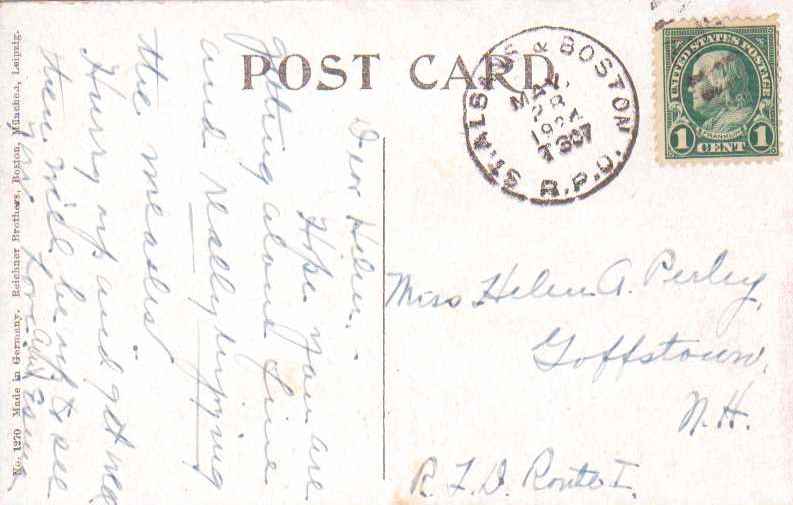 POST CARD
ST. ALBANS & BOSTON
MAY
28
1924
T 307
R.P.O.
UNITED STATES POSTAGE
FRANKLIN
1 CENT 1
Dear Helen, -
Hope you are
getting along fine
and really enjoying
the measles
Hurry up and get well
then will be up to see
you. Love
Miss Helen A. Perley,
Goffstown,
N.H.
R.F.D. Route 1.
No. 1270 Made in Germany. Reichner Brothers, Boston, München, Leipzig.